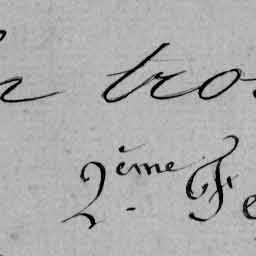 tro
2ème Fe